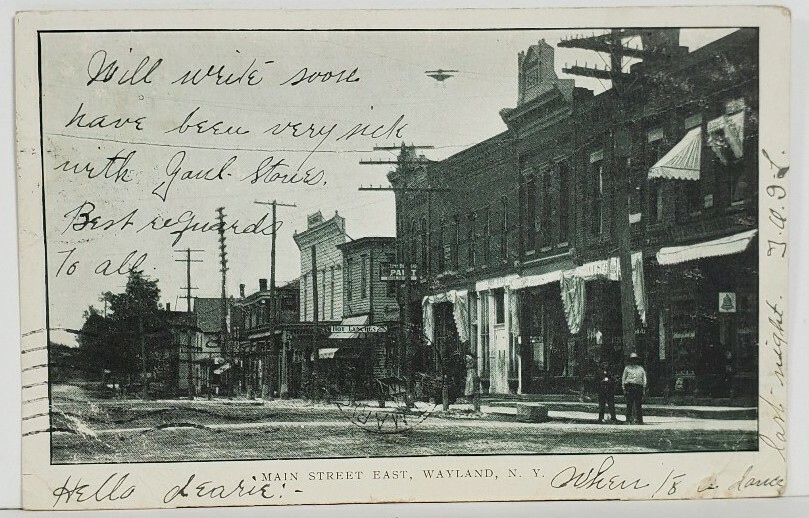 Will write soon
have been very sick
with Gaul-Stones.
Best regards
To all.
PAI
HOT LUNCHES
MAIN STREET EAST, WAYLAND, N. Y.
Hello dearie:-
When to a dance
last night.